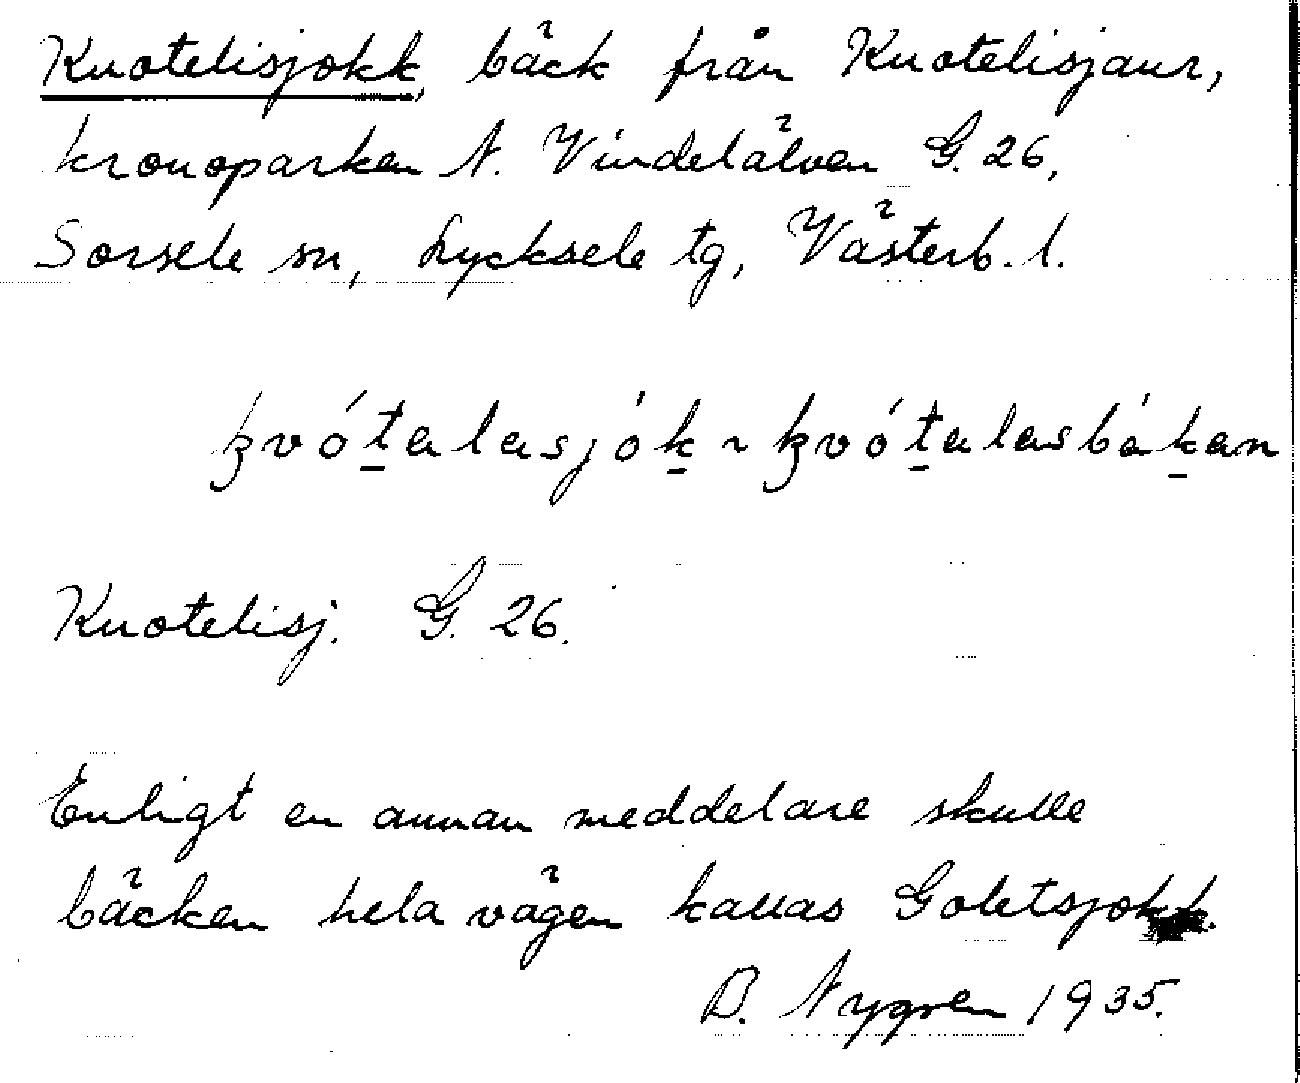 Kuotelisjokk, bäck från Kuotelisjaur,
kronoparken N. Vindelälven G. 26,
Sorsele sn, Lycksele tg, Västerb. l.
kvót̠alasjók̠ ~ kvót̠alasbák̠an
Kuotelisj. G. 26.
Enligt en annan meddelare skulle
bäcken hela vägen kallas Goletsjokk.
B. Nygren 1935.